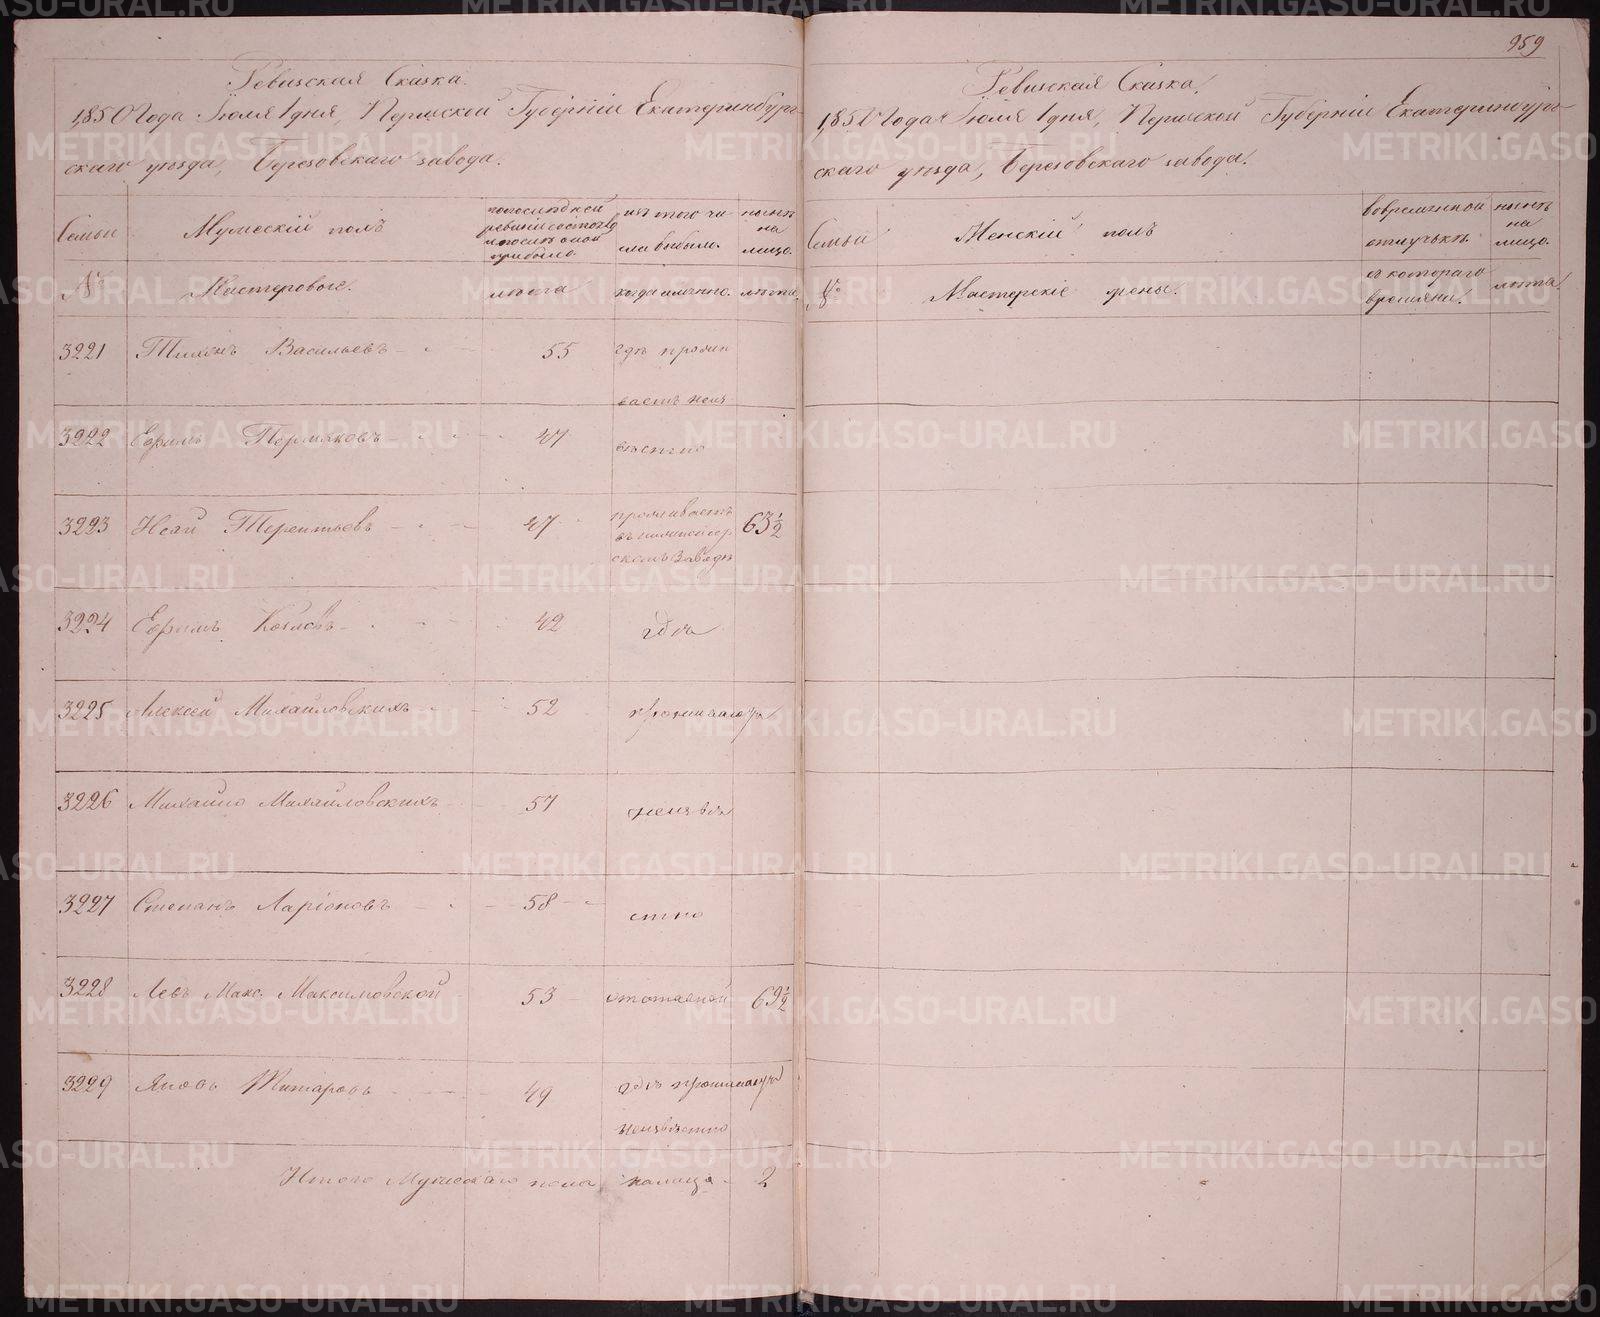 959
Ревизская Сказка.
1850 Года Июля 1 дня, Пермской Губерніи Екатеринбург-
скаго уѣзда, Березовскаго завода.
Семьи
Мужескій полъ
по последней ревизіи состояло и после оной прибыло.
изъ того числа выбыло.
нынѣ на лицо.
№
Мастеровые.
лѣта
когда имянно.
лѣта.
3221 Тихонъ Васильевъ 55 гдѣ прожи
ваетъ неиз
3222 Ефимъ Пермяковъ 47 вѣстно
3223 Исай Терентьевъ 47 проживаетъ 63½
заводѣ
3224 Ефимъ Котловъ 42 гдѣ
3225 Алексей Михайловскихъ 52
3226 Михайло Михайловскихъ 57 неизвѣ
3227 Степанъ Ларіоновъ 58 стно
3228 Левъ Макс. Максимовской 53 отставной 69½
3229 Яковъ Титаровъ 49 гдѣ
неизвѣстно
Итого Мужескаго пола налицо 2
Ревизская Сказка.
1850 Года Июля 1 дня, Пермской Губерніи Екатеринбург-
скаго уѣзда, Березовскаго завода.
Семьи
Женскій полъ
во временной отлучкѣ.
нынѣ на лицо.
№
Мастерскіе жены.
съ котораго времени.
лѣта.
METRIKI.GASO-URAL.RU